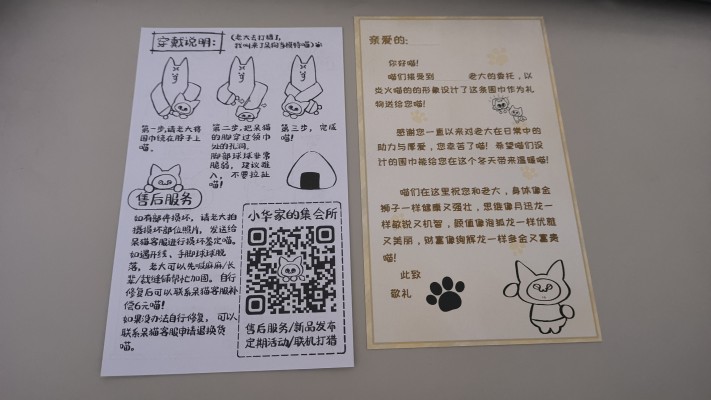 穿戴说明:
(老大去打猎了,
我叫来了呆向当模特喵)
第一步,请老大将
围巾绕在脖子上
喵。
第二步,把呆猫
的脚穿过领巾
处的孔洞。
脚部球球非常
脆弱,建议推
入,不要拉扯
喵!
第三步,完成
喵!
售后服务
如有部件损坏,请老大拍
摄损坏部位照片,发送给
呆猫客服进行损坏鉴定喵。
如遇开线、手脚球球脱
落,老大可以先喊麻麻/长
辈/裁缝铺帮忙加固。自行
修复后可以联系呆猫客服补
偿6元喵!
如果没办法自行修复,可以
联系呆猫客服申请退换货
喵。
小华家的集会所
售后服务/新品发布
定期活动/联机打猎
亲爱的:
你好喵!
喵们接受到 老大的委托,以
炎火猫的的形象设计了这条围巾作为礼
物送给您喵!
感谢您一直以来对老大在日常中的
助力与厚爱,您幸苦了喵!希望喵们设
计的围巾能给您在这个冬天带来温暖喵!
喵们在这里祝您和老大,身体像金
狮子一样健康又强壮,思维像月迅龙一
样敏锐又机智,颜值像泡狐龙一样优雅
又美丽,财富像绚辉龙一样多金又富贵
喵!
此致
敬礼